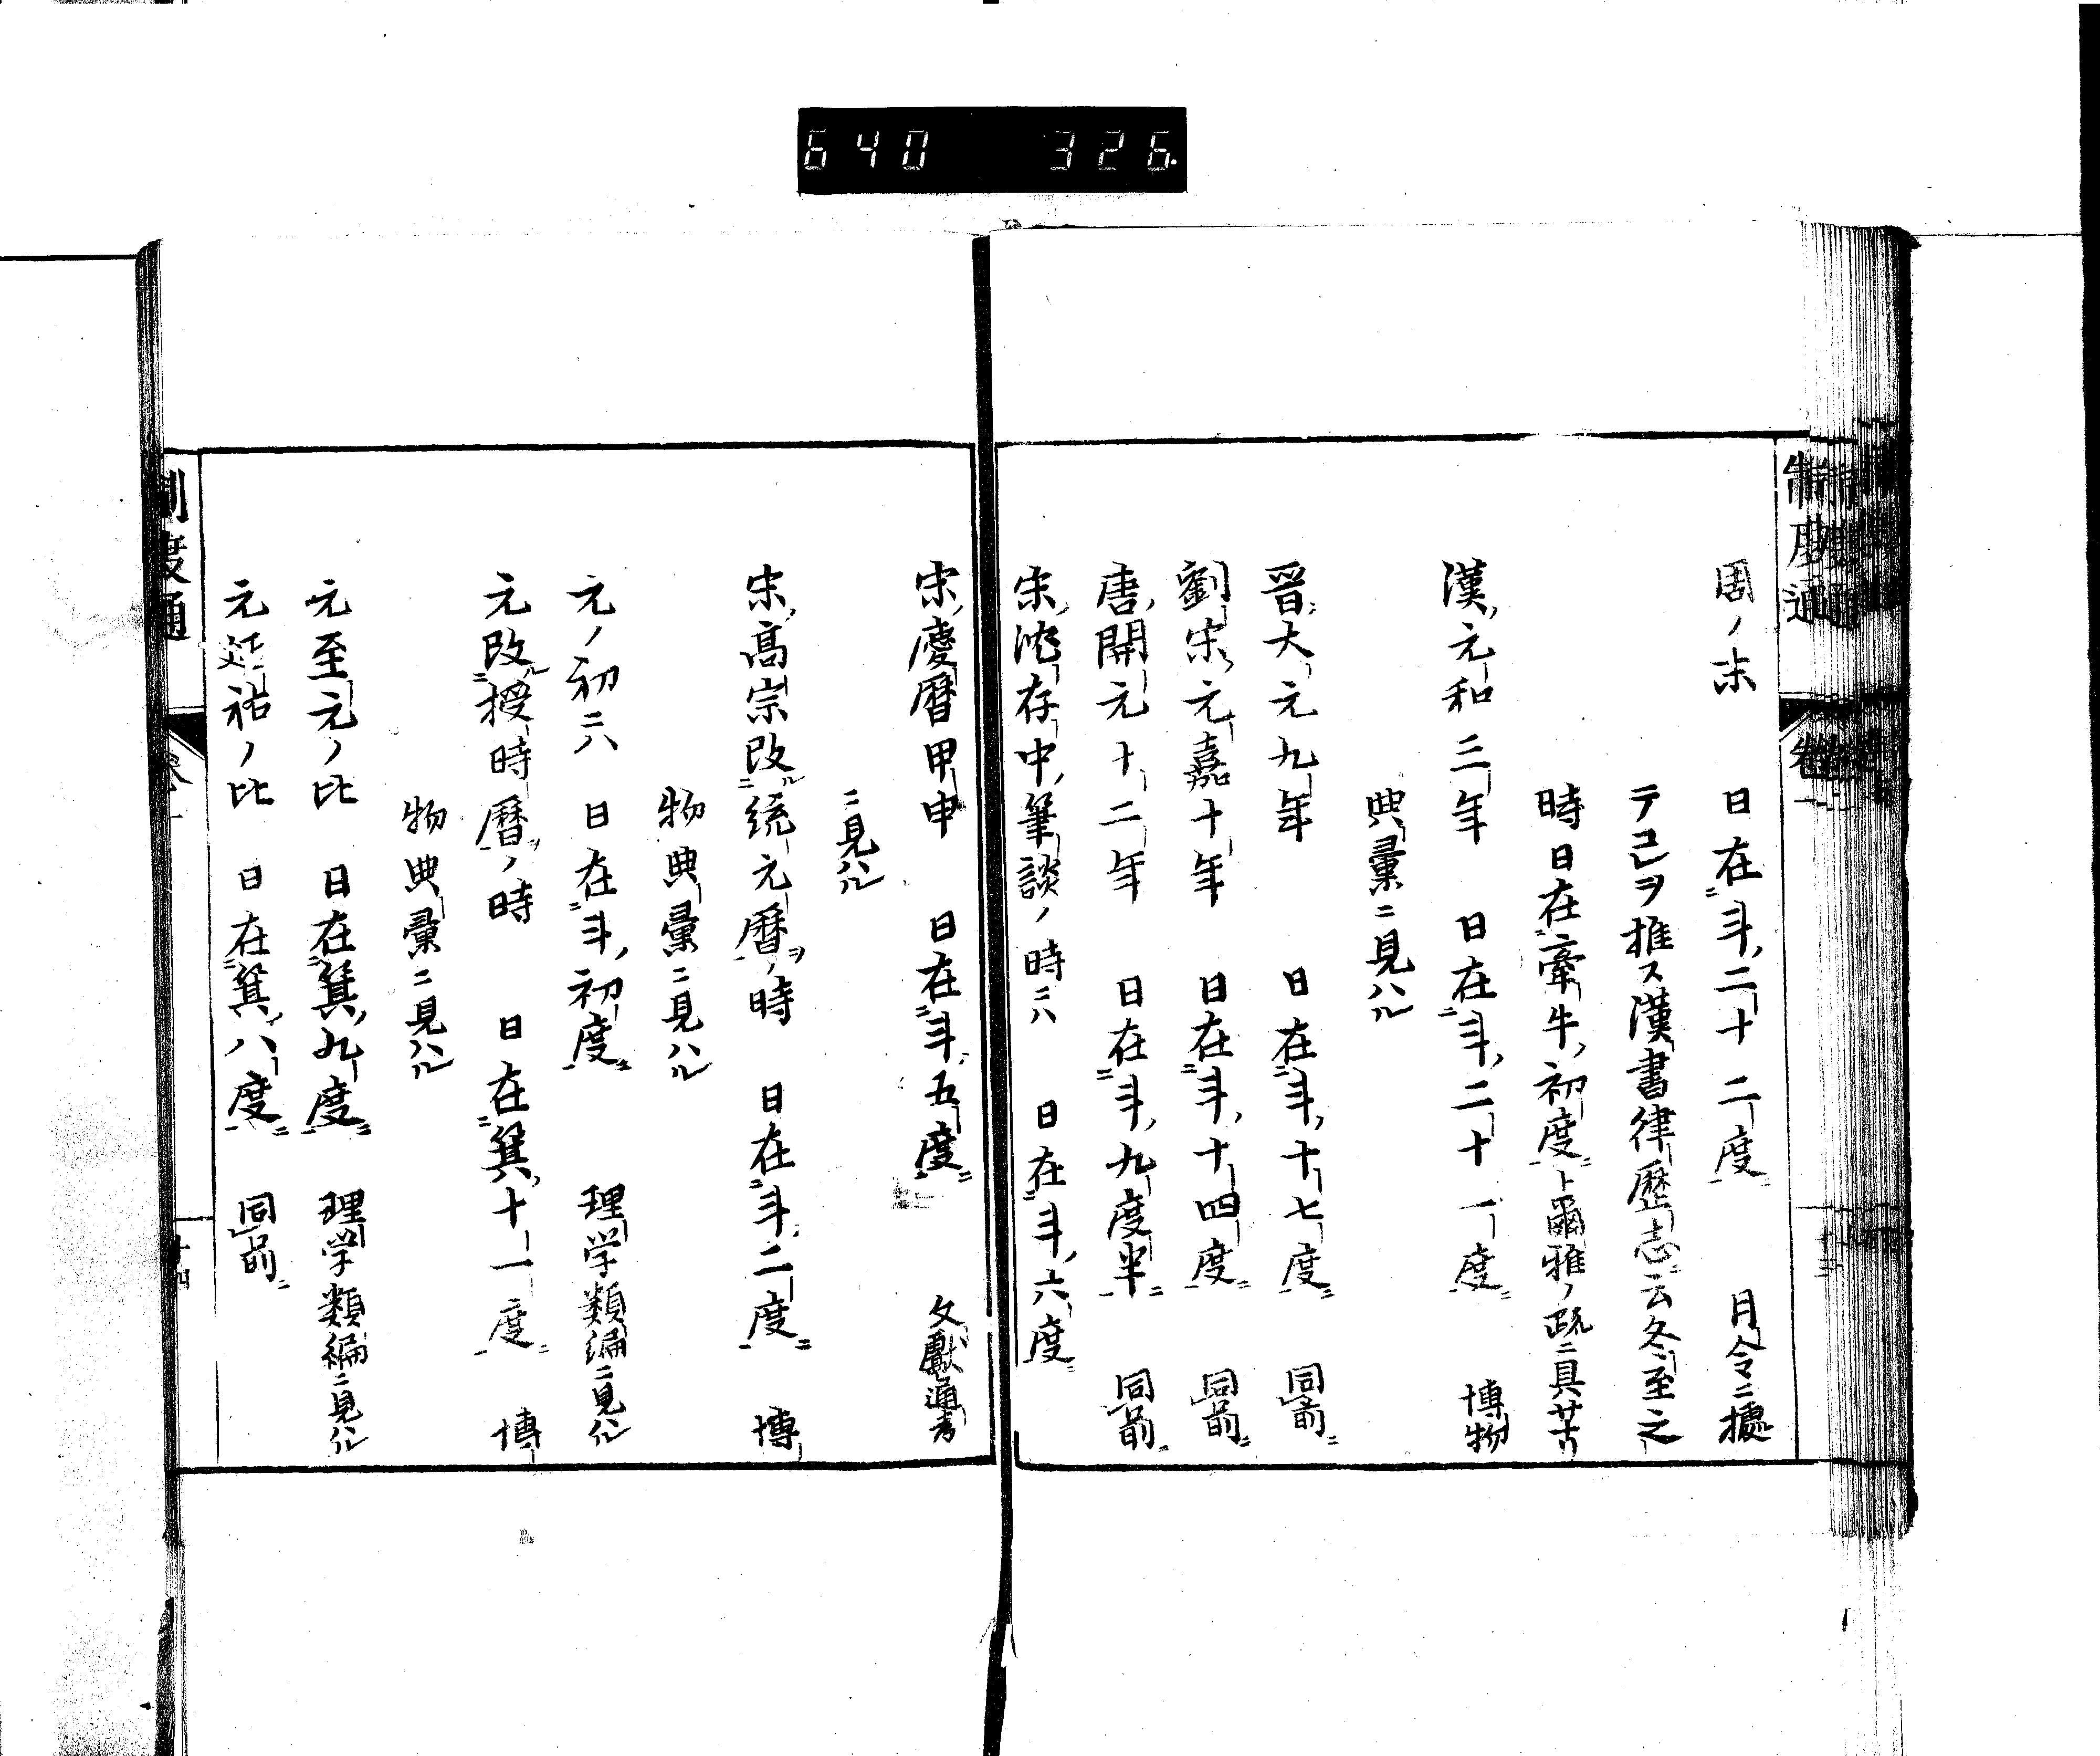 640 326
制度通 卷一
周ノ末 日在斗二十二度 月令ニ據
テコレヲ推ス漢書律歷志云冬至之
時日在牽牛初度ト爾雅ノ疏ニ具
漢元和三年 日在斗二十一度 博物
典彙ニ見ハル
晋大元九年 日在斗十七度 同前
劉宋元嘉十年 日在斗十四度 同前
唐開元十二年 日在斗九度半 同前
宋沈存中筆談ノ時ニハ 日在斗六度
宋慶曆甲申 日在斗五度 文獻通考
ニ見ハル
宋高宗改統元曆ノ時 日在斗二度 博
物典彙ニ見ハル
元ノ初ニハ 日在斗初度 理学類編ニ見ハル
元改授時曆ノ時 日在箕十一度 博
物典彙ニ見ハル
元至元ノ比 日在箕九度 理学類編ニ見ハル
元延祐ノ比 日在箕八度 同前
制度通 卷一 十四